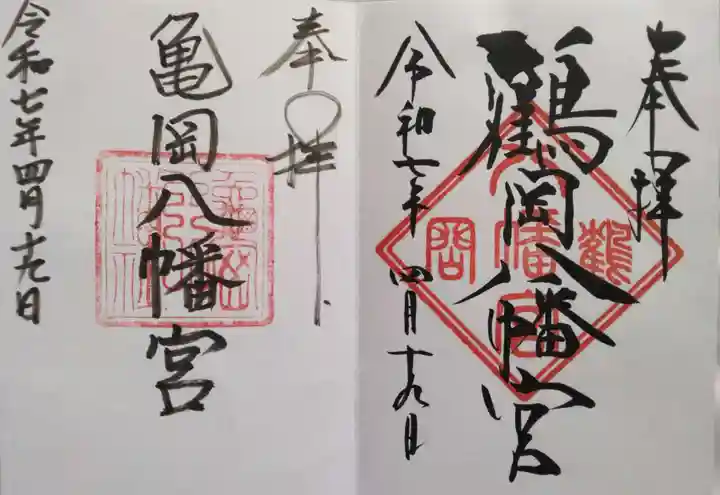 奉拝
鶴岡八幡宮
鶴
八幡宮
岡
令和七年四月十九日
奉拝
亀岡八幡宮
令和七年四月十九日